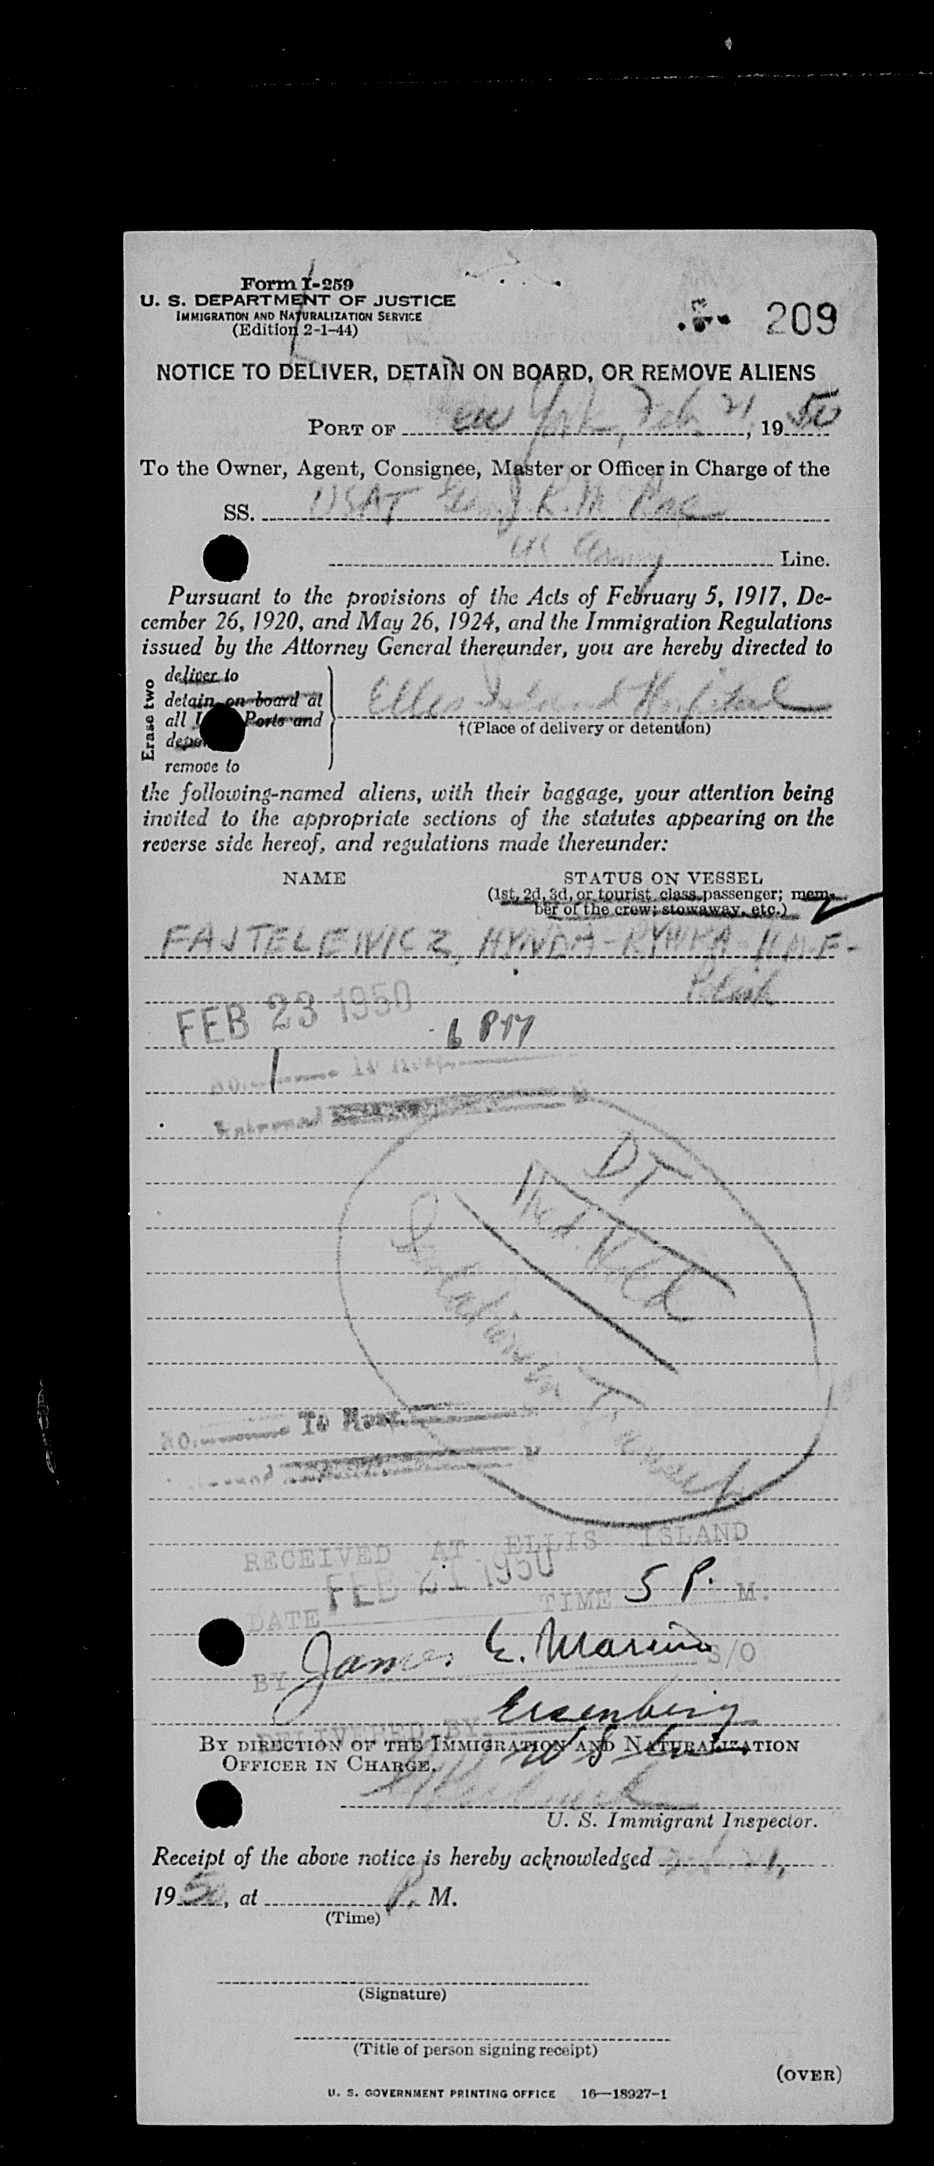 Form I-259
U. S. DEPARTMENT OF JUSTICE
IMMIGRATION AND NATURALIZATION SERVICE
(Edition 2-1-44)
209
NOTICE TO DELIVER, DETAIN ON BOARD, OR REMOVE ALIENS
PORT OF New York, Feb. 21, 1950
To the Owner, Agent, Consignee, Master or Officer in Charge of the
SS. USAT Gen. R. M.
Army Line.
Pursuant to the provisions of the Acts of February 5, 1917, De-
cember 26, 1920, and May 26, 1924, and the Immigration Regulations
issued by the Attorney General thereunder, you are hereby directed to
Erase two
deliver to
detain on board at
all Ports and
remove to
Ellis Island Hospital
†(Place of delivery or detention)
the following-named aliens, with their baggage, your attention being
invited to the appropriate sections of the statutes appearing on the
reverse side hereof, and regulations made thereunder:
NAME
STATUS ON VESSEL
(1st, 2d, 3d, or tourist class passenger; mem-
ber of the crew; stowaway, etc.)
FAJTELEWICZ, HYNDA-RYWKA-11M-F-
Polish
FEB 23 1950
6 PM
No. 1 To Hosp.
DT
Med. Held
In Transit
No. To Hosp.
RECEIVED AT ELLIS ISLAND
DATE FEB 21 1950 TIME 5 P. M.
BY James E. S/O
Eisenberg
DELIVERED BY
BY DIRECTION OF THE IMMIGRATION AND NATURALIZATION
OFFICER IN CHARGE.
U. S. Immigrant Inspector.
Receipt of the above notice is hereby acknowledged Feb 21,
1950, at P. M.
(Time)
(Signature)
(Title of person signing receipt)
(OVER)
U. S. GOVERNMENT PRINTING OFFICE 16—18927-1